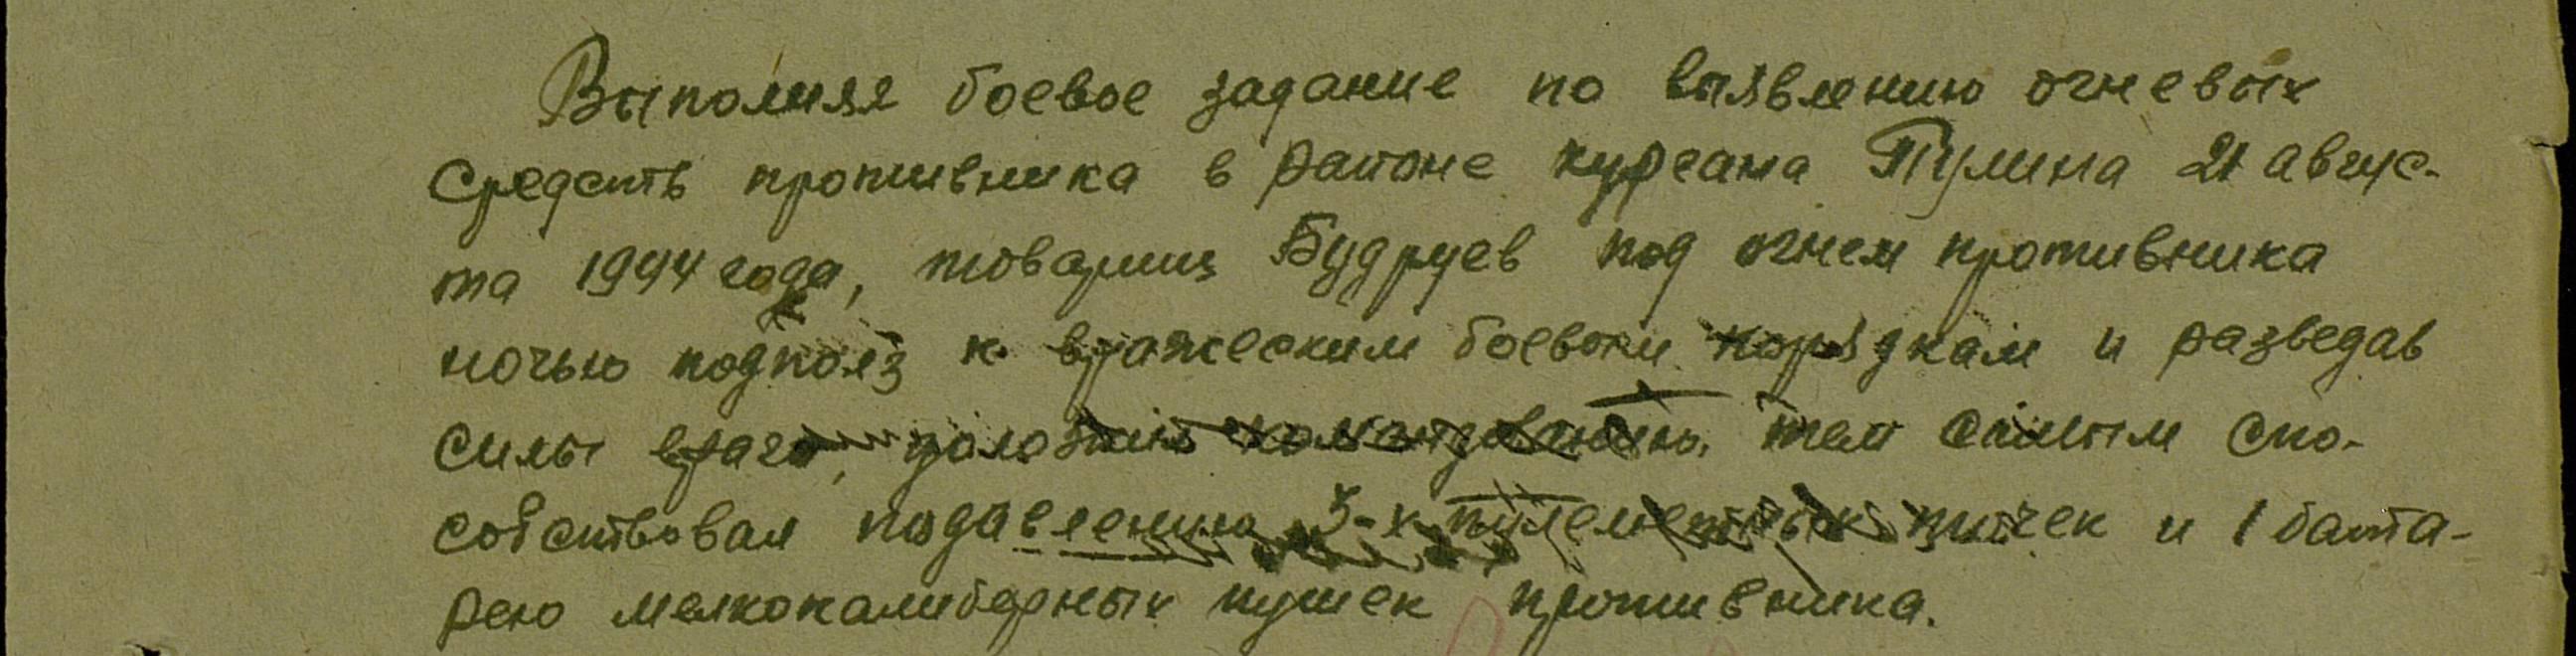 Выполняя боевое задание по выявлению огневых
средств противника в районе кургана Тулина 21 авгус-
та 1944 года, товарищ Будруев под огнем противника
ночью подполз к вражеским боевым порядкам и разведав
силы врага, доложил командованию, тем самым спо-
собствовал подавлению 3-х пулеметных точек и 1 бата-
рею мелкокалиберных пушек противника.